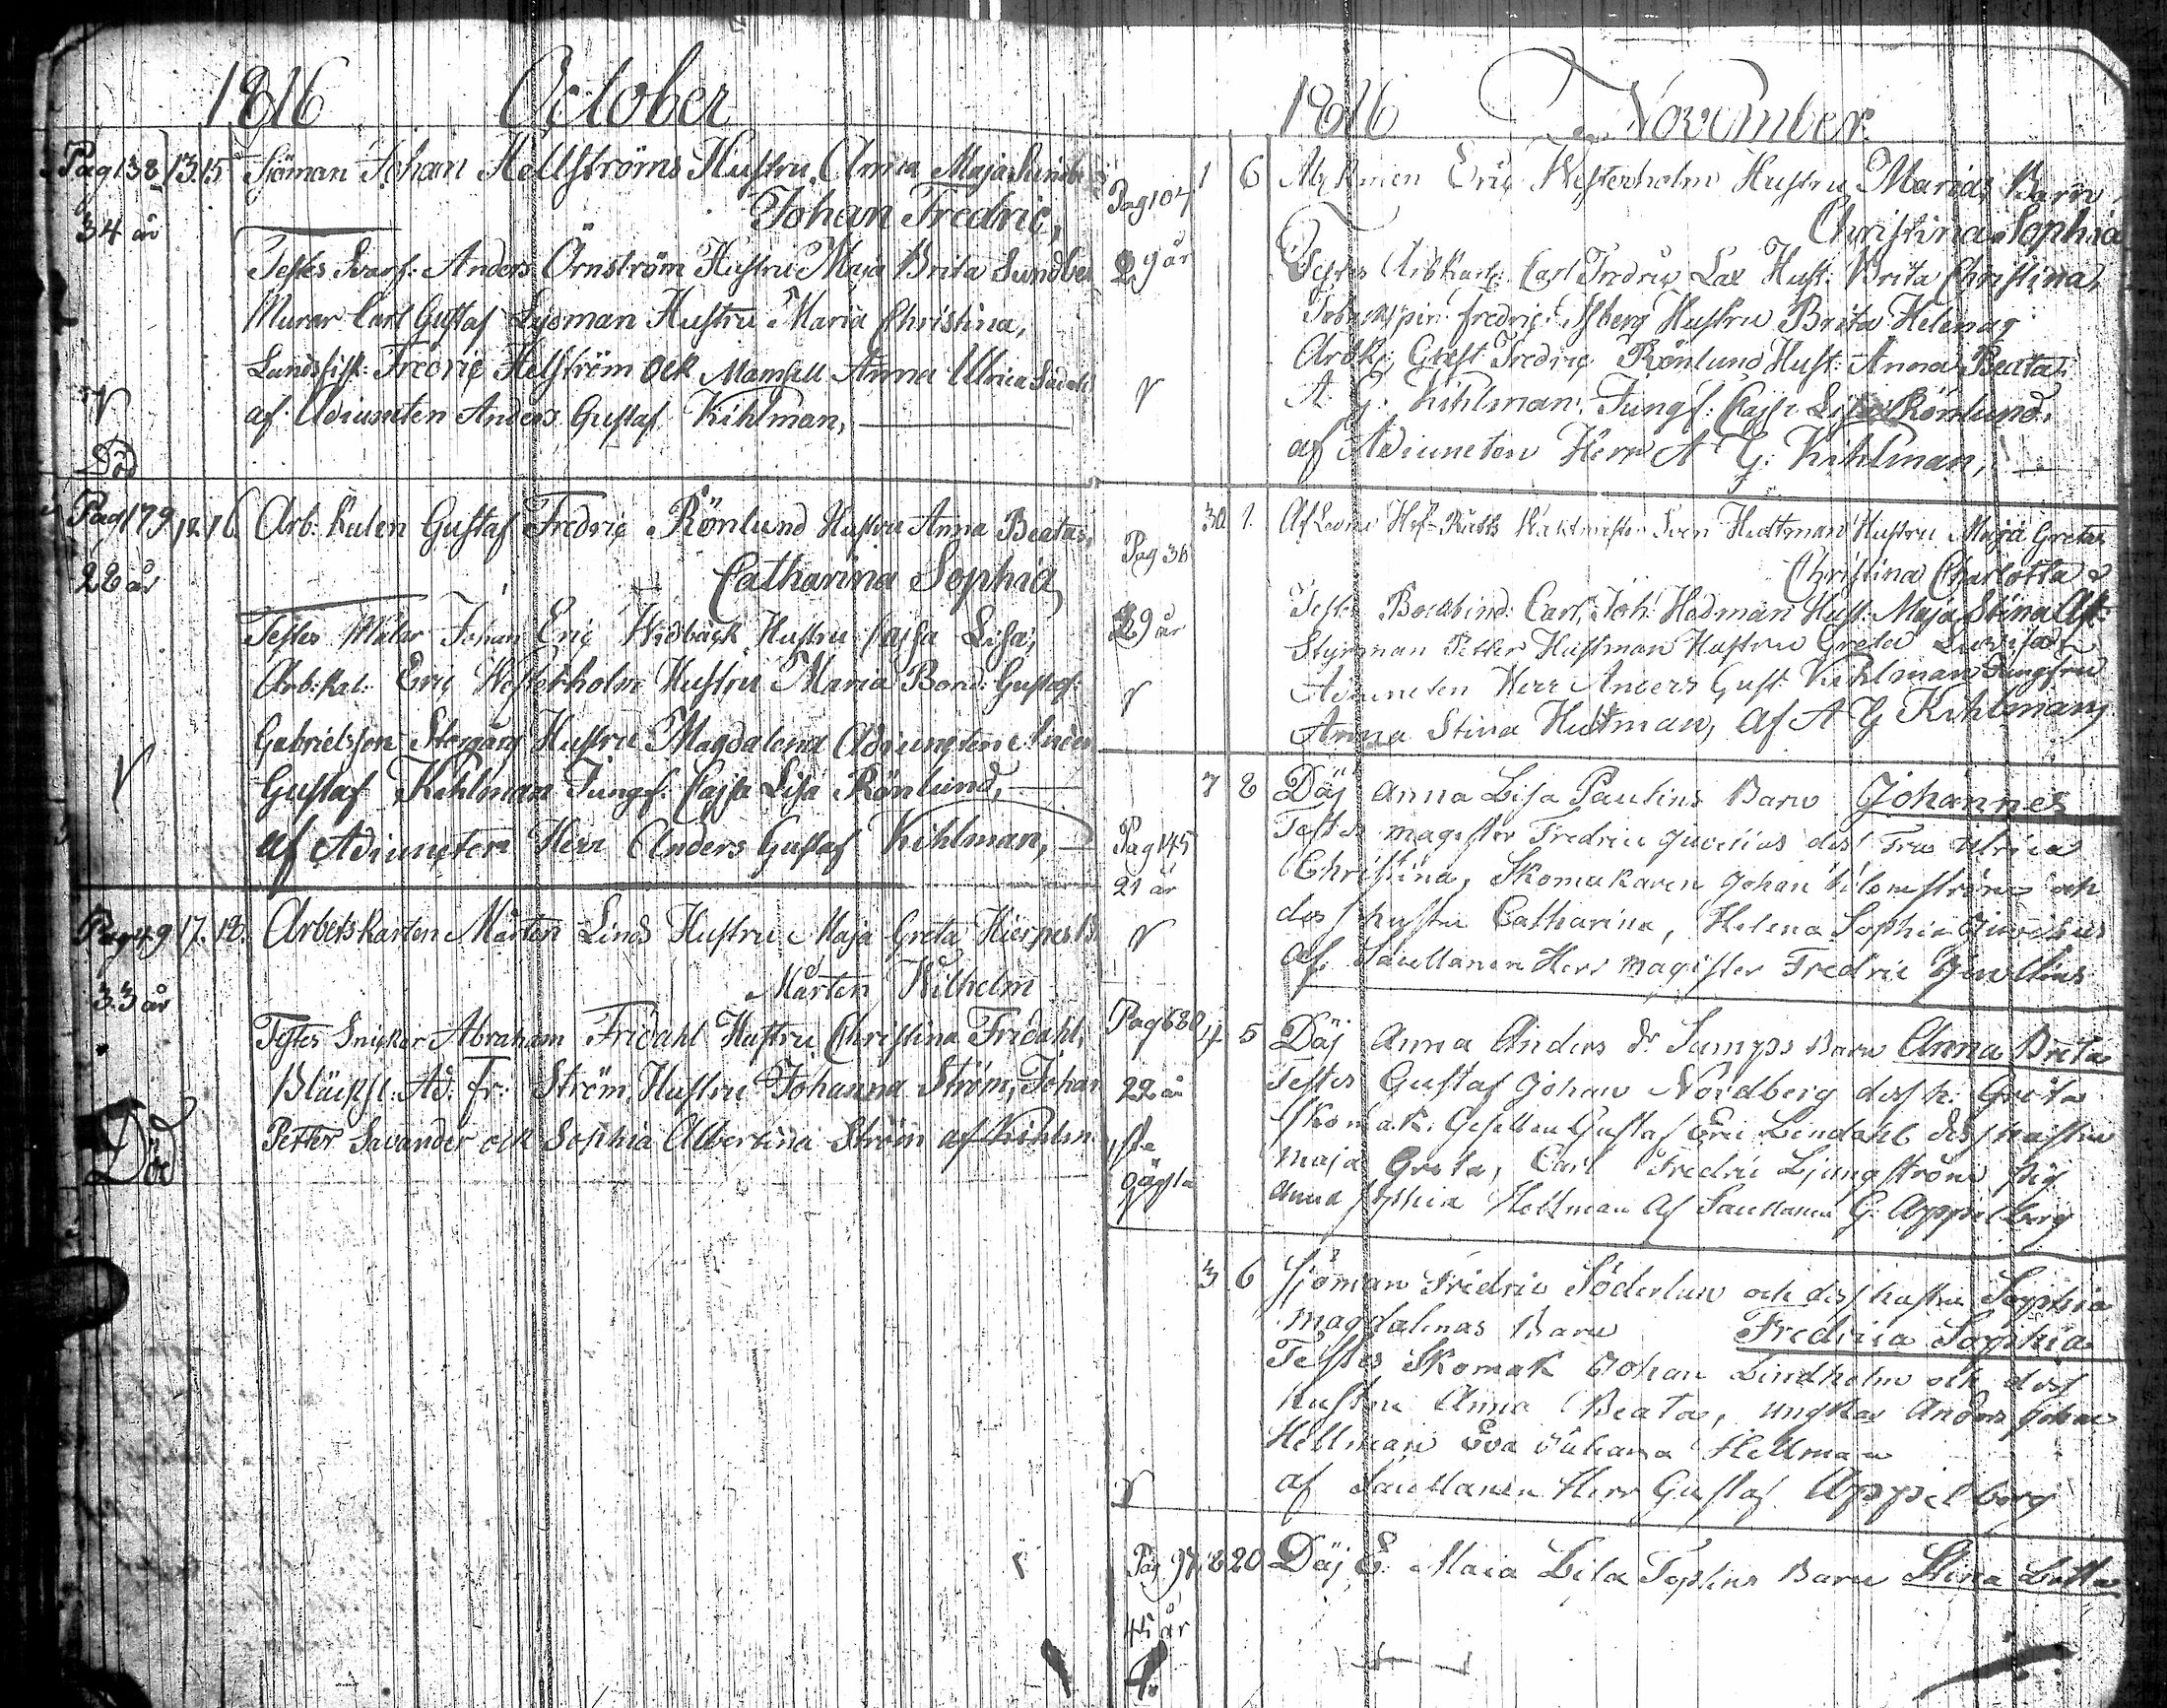 1816 October
Pag 138 13. 15. Sjöman Johan Hellströms Hustru Anna Maja
34 år Johan Fredric,
Testes Svarf: Anders Örnström Hustru Maja Brita Sundbe
Murar Carl Gustaf Lysman Hustru Maria Christina,
Fredric Hellström och Mamsell Anna Ulrica
af Adiuncten Anders Gustaf Kihlman,
Död
Pag 179 12. 16. Arb. Kalen Gustaf Fredric Rönlund Hustru Anna Beatas,
28 år Catharina Sophia
Testes Målar Johan Eric Widbäck Hustru Cajsa Lisa,
Arb: Kal: Eric Westerholm Hustru Maria Bond: Gustaf:
Gabrielsson Storgård Hustru Magdalena Adiuncten Ander
Gustaf Kihlman Jungf: Cajsa Lisa Rönlund,
af Adiuncten Herr Anders Gustaf Kihlman,
Pag 49 17. 18. Arbetskarlen Mårten Linds Hustru Maja Greta
33 år Mårten Wilhelm
Testes Snickar Abraham Fridahl Hustru Christina Fridahl,
Ad. Fr: Ström Hustru Johanna Ström, Johan
Petter Savander och Sophia Albertina Ström af Kihlm
Död
1816 November
Pag 104 1 6 Eric Westerholm Hustru Marias Barn
Christina Sophia
29 år Testes Arbkarl: Carl Fredric Lax Hust: Brita Christina,
Fredric Isberg Hustru Brita Helena,
Arbk: Gust Fredric Rönlund Hust: Anna Beata,
A: G: Kihlman, Jungf: Cajsa Lisa Rönlund,
af Adiuncten Herr A G: Kihlman,
Pag 36 30 1. Sven Hustru Maja Gretas
Christina Charlotta
29 år Testes Bockbind: Carl Joh: Hedman Hust: Maja Stina
Styrman Petter Hustru Greta Lovisa
Adiuncten Herr Anders Gust Kihlman Jungfru
Anna Stina af A G Kihlman
7 8 Däj Anna Lisa Paulins Barn Johannes
Pag 145 Testes magister Fredric Juvelius dess Fru Ulrica
21 år Christina, Skomakaren Johan Blomström och
dess hustru Catharina, Helena Sophia Juvelius
af Sacellanen Herr magister Fredric Juvelius
Pag 680 4 5 Däj Anna Anders dr Barn Anna Brita
22 år Testes Gustaf Johan Nordberg dess h. Greta
Skomak. Gesellen Gustaf Eric Lindahl dess hustru
Maja Greta, Carl Fredric Ljungström Pig
Anna Sophia Hellman af Sacellanen G: Appelberg
3 6 Sjöman Fredric Söderlun och dess hustru Sophia
Magdalenas Barn Fredrica Sophia
Testes Skomak Johan Lindholm och dess
hustru Anna Beata, ungkar Anders Johan
Hellman Eva Juliana Hellman
af Sacellanen Herr Gustaf Appelberg
Pag 97 8 20 Däj E. Maia Lisa Barn Stina Lotta
45 år